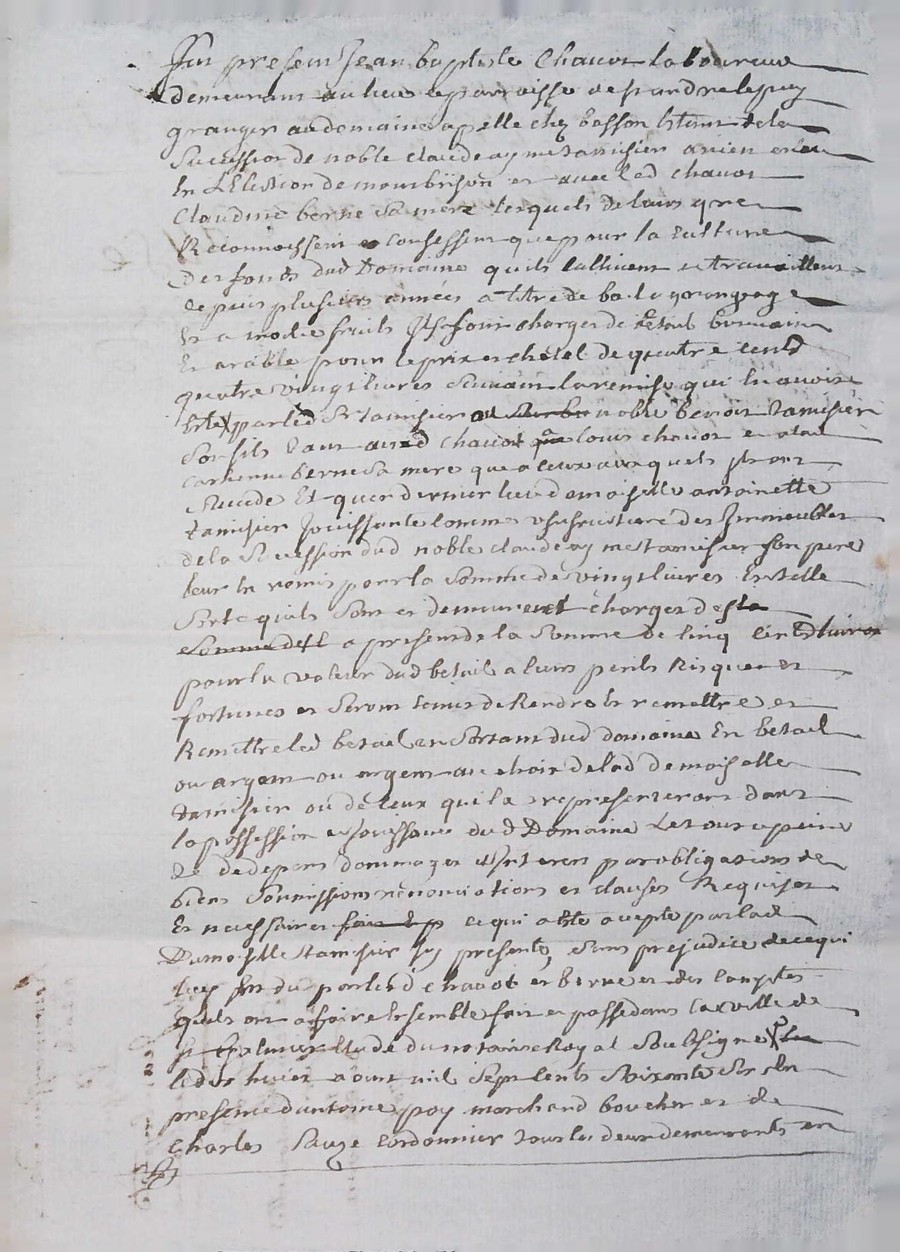 Fut present Jean baptiste Chavot laboureur
demeurant au lieu et parroisse de st andre le puy
granger au domaine apelle chez basson l'etant de la
Succession de noble claude aymes tamisier ancien esleu
En L'Election de montbrison et avec led chavot
Claudine berne sa mere lesquels de leurs gre
Reconnoissent et confessent que pour la culture
Des fonds dud Domaine quils cultivent et travaillent
depuis plusieurs années a titre de bail a grangeage
Et a moitie fruits Ils se sont charges de betail bovain
Et arable pour le prix et chetel de quatre cend
quatre vingt livres suivant la remise qui En avoit
Esté par led Sr tamisier noble benoit tamisier
Son fils tant aud chavot qua louis chavot et a lad
berne sa mere que a ceux auxquels ils ont
Succede Et quen dernier lieu demoiselle antoinette
tamisier Jouissante comme usufruitiere des Immeubles
de la Succession dud noble claude aymes tamisier son pere
leur En remis pour la Somme de vingt livres En telle
Sorte quils Sont et demeurent charges de la
Somme de a present de la Somme de cinq cend livres
pour la valeur dud betail a leurs perils Risques et
fortunes et Seront tenus de Rendre et remettre et
Remettre led betail en Sortant dud domaine En betail
ou argent ou argent au choix de lad Demoiselle
tamisier ou de ceux qui la representeront dans
la possession et Jouissance dud Domaine Le tout a peine
de de depens dommages et Interets par obligations de
biens Soumissions renonciations et clauses Requises
Et necessaires ce qui a été accepte par lad
Damoiselle tamisier Icy presente, sans prejudice de ce qui
luy est du par led chavot et berne et des comptes
quils ont a faire Ensemble fait et passé dans la ville de
st galmier Etude du notaire Royal Soubsigné
le dix huit aoust mil Sept cents Soixante Six En
presence d'antoine poy marchand boucher et de
Charles Sauze Cordonnier tous les deux demeurants en